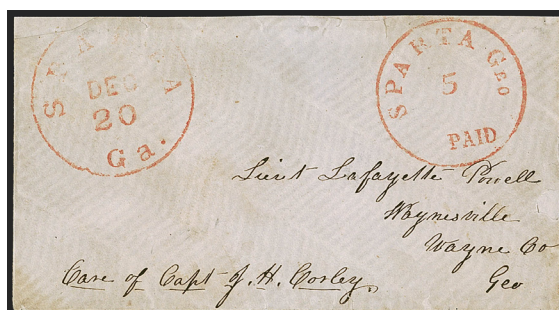 SPARTA
DEC
20
Ga.
SPARTA GEO
5
PAID
Lieut Lafayette Powell
Waynesville
Wayne Co
Geo
Care of Capt J. H. Corley